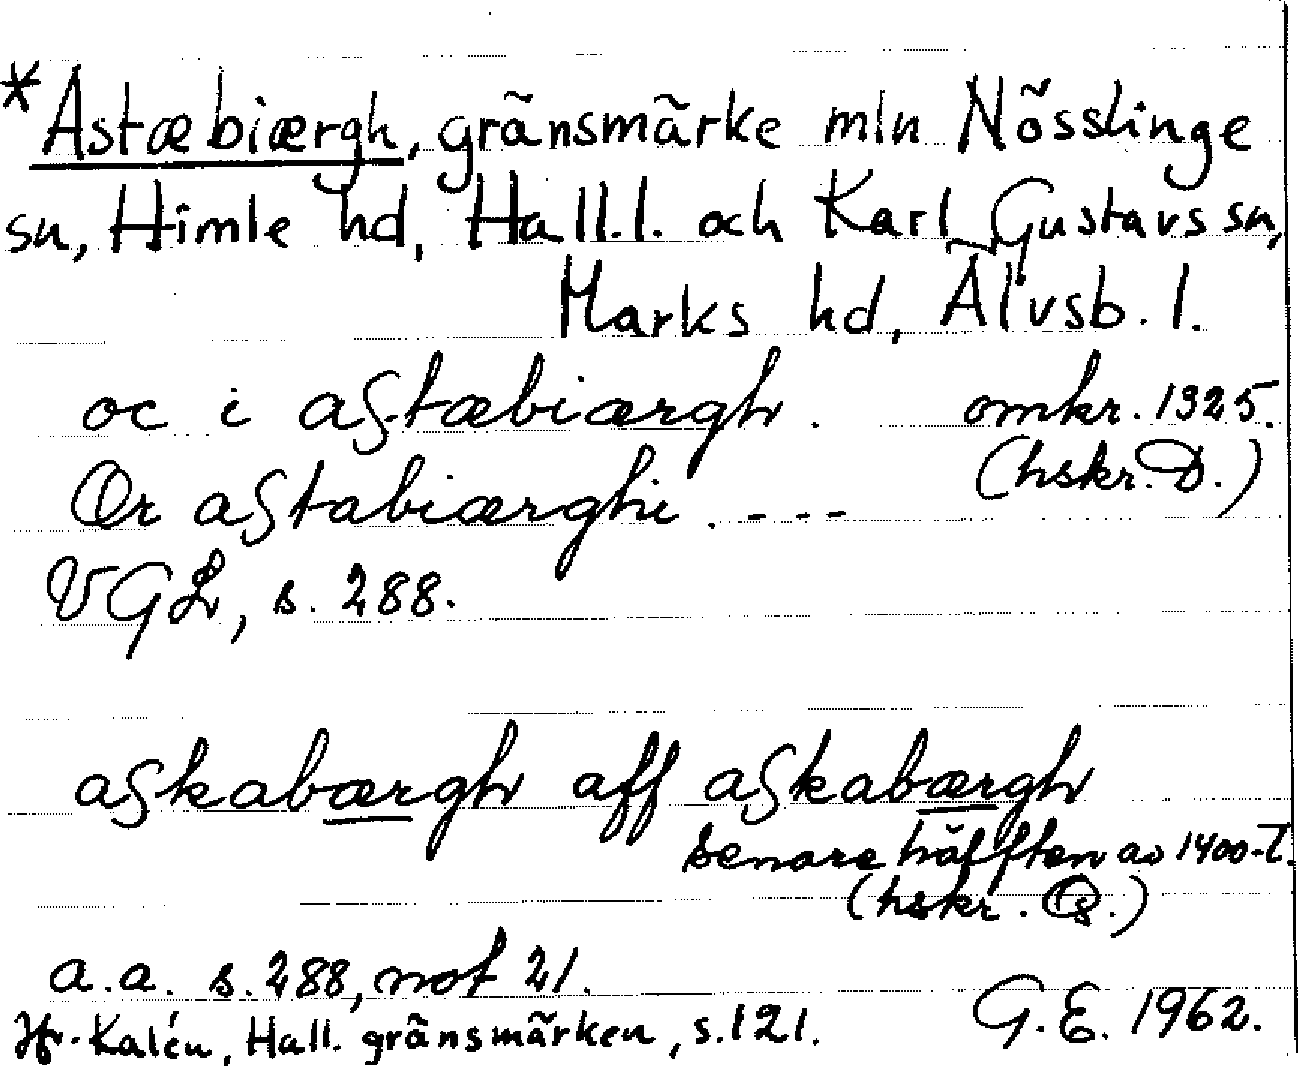 *Astæbiærgh, gränsmärke mln Nösslinge
sn, Himle hd, Hall.l. och Karl Gustavs sn,
Marks hd, Älvsb. l.
oc i astæbiærgh. omkr. 1325.
(hskr. D.)
Or astabiærghi. - - - -
VGL, s. 288.
askabærgh aff askabærgh
senare hälften av 1400-t.
(hskr. Q.)
a.a. s. 288, not 21.
G.E. 1962.
Jfr. Kalén, Hall. gränsmärken, s. 121.